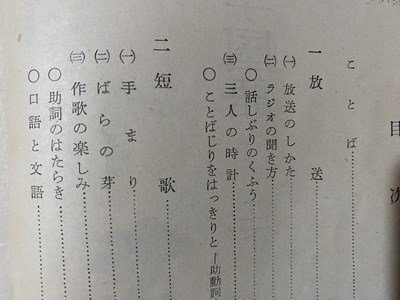 目次
ことば
一 放送
㈠ 放送のしかた
㈡ ラジオの聞き方
○ 話しぶりのくふう
㈢ 三人の時計
○ ことばじりをはっきりと―助動詞
二 短歌
㈠ 手まり
㈡ ばらの芽
㈢ 作歌の楽しみ
○ 助詞のはたらき
○ 口語と文語